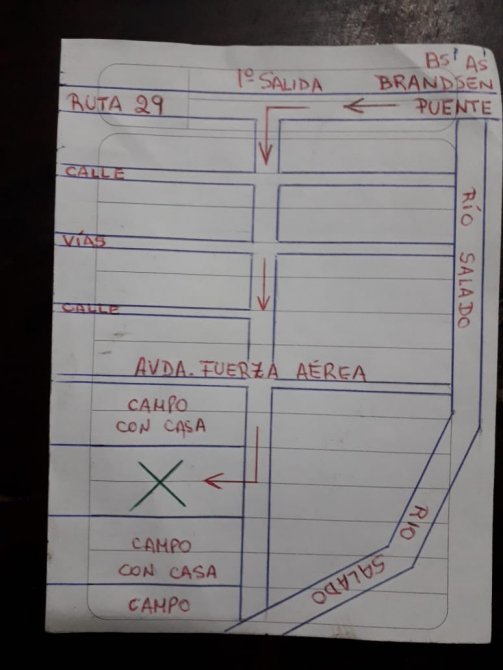 Bs As
1º SALIDA BRANDSEN
RUTA 29 PUENTE
CALLE
RÍO SALADO
VÍAS
CALLE
AVDA. FUERZA AÉREA
CAMPO
CON CASA
RÍO
SALADO
CAMPO
CON CASA
CAMPO